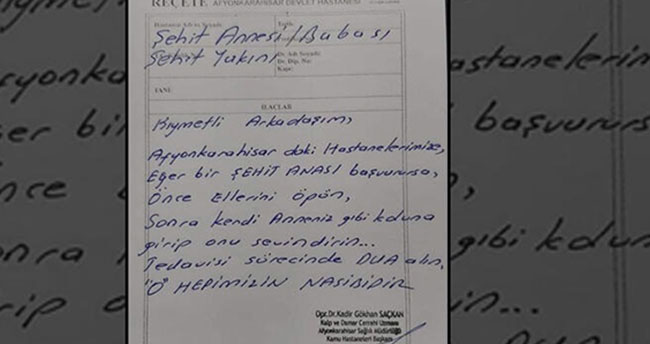 REÇETE AFYONKARAHİSAR DEVLET HASTANESİ
Hastanın Adı ve Soyadı
Şehit Annesi / Babası
Şehit Yakını
Dr. Adı Soyadı:
Dr. Dip. No:
Kaşe:
TANI:
İLAÇLAR
Kıymetli Arkadaşım,
Afyonkarahisar daki Hastanelerimize,
Eğer bir ŞEHİT ANASI başvurursa,
Önce Ellerini öpün,
Sonra kendi Anneniz gibi koluna
girip onu sevindirin...
Tedavisi sürecinde DUA alın,
"O" HEPİMİZİN NASİBİDİR
Opr. Dr. Kadir Gökhan SAÇKAN
Kalp ve Damar Cerrahi Uzmanı
Afyonkarahisar Sağlık Müdürlüğü
Kamu Hastaneleri Başkanı